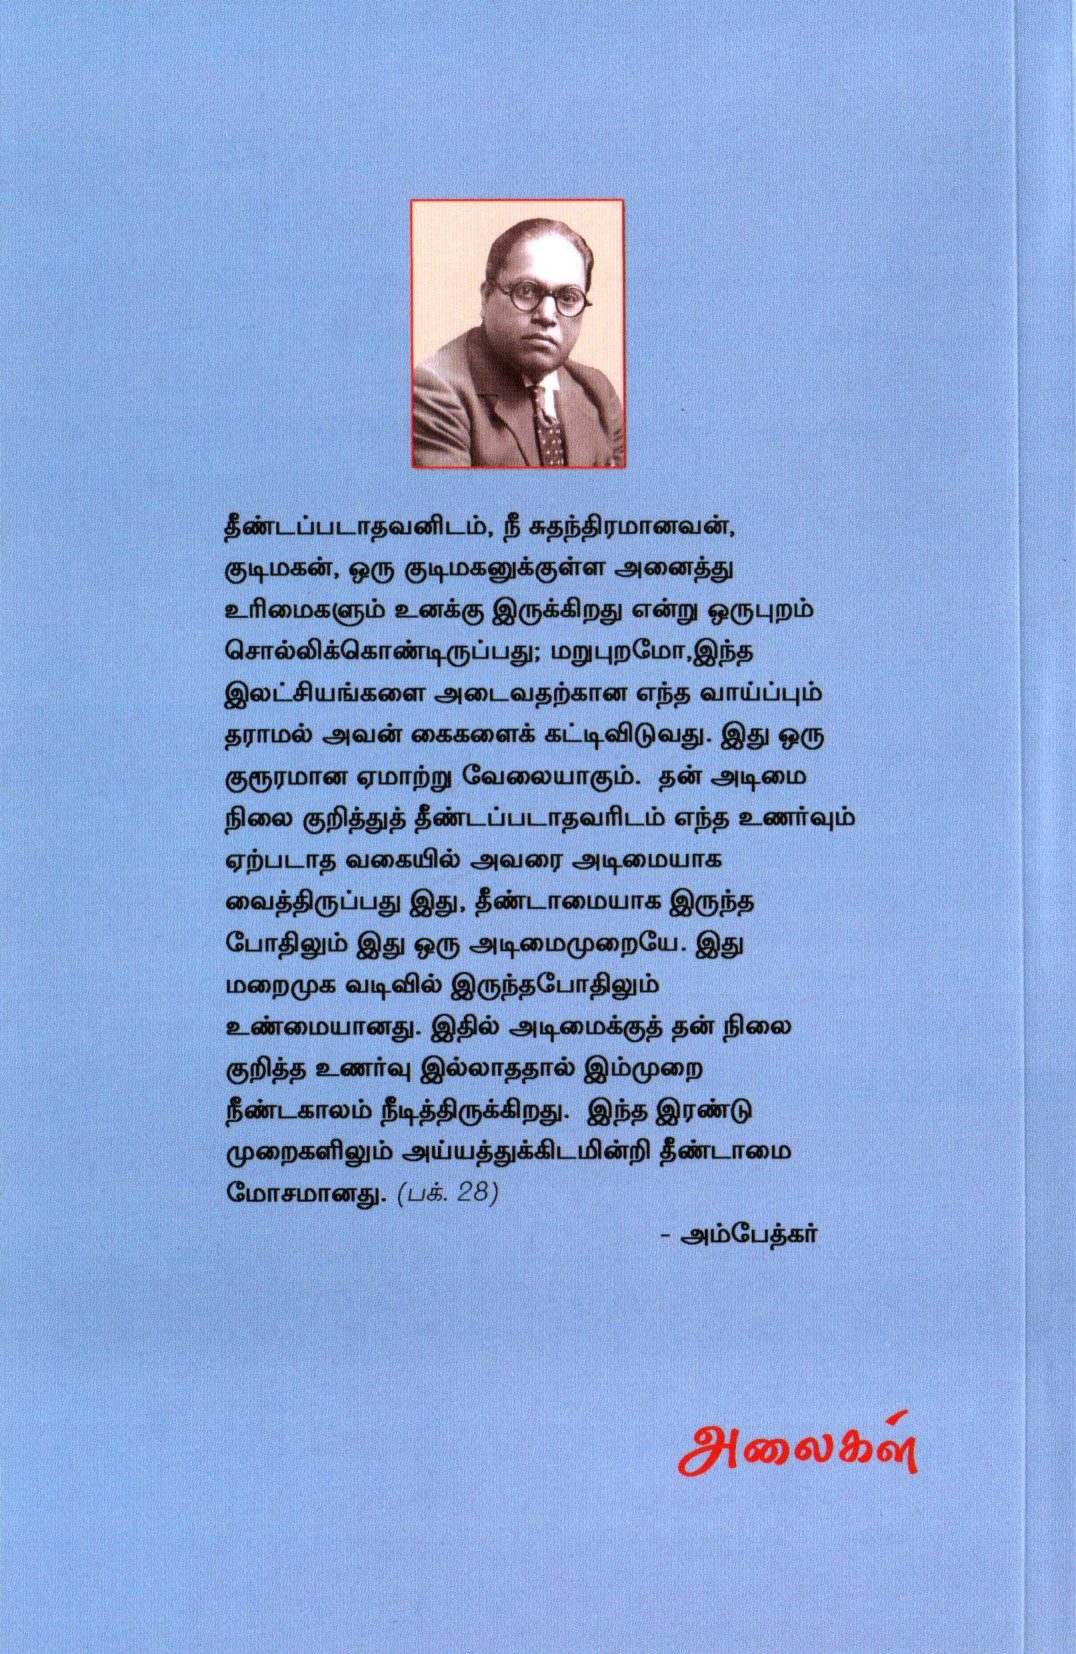 தீண்டப்படாதவனிடம், நீ சுதந்திரமானவன்,
குடிமகன், ஒரு குடிமகனுக்குள்ள அனைத்து
உரிமைகளும் உனக்கு இருக்கிறது என்று ஒருபுறம்
சொல்லிக்கொண்டிருப்பது; மறுபுறமோ,இந்த
இலட்சியங்களை அடைவதற்கான எந்த வாய்ப்பும்
தராமல் அவன் கைகளைக் கட்டிவிடுவது. இது ஒரு
குரூரமான ஏமாற்று வேலையாகும். தன் அடிமை
நிலை குறித்துத் தீண்டப்படாதவரிடம் எந்த உணர்வும்
ஏற்படாத வகையில் அவரை அடிமையாக
வைத்திருப்பது இது, தீண்டாமையாக இருந்த
போதிலும் இது ஒரு அடிமைமுறையே. இது
மறைமுக வடிவில் இருந்தபோதிலும்
உண்மையானது. இதில் அடிமைக்குத் தன் நிலை
குறித்த உணர்வு இல்லாததால் இம்முறை
நீண்டகாலம் நீடித்திருக்கிறது. இந்த இரண்டு
முறைகளிலும் அய்யத்துக்கிடமின்றி தீண்டாமை
மோசமானது. (பக். 28)
- அம்பேத்கர்
அலைகள்